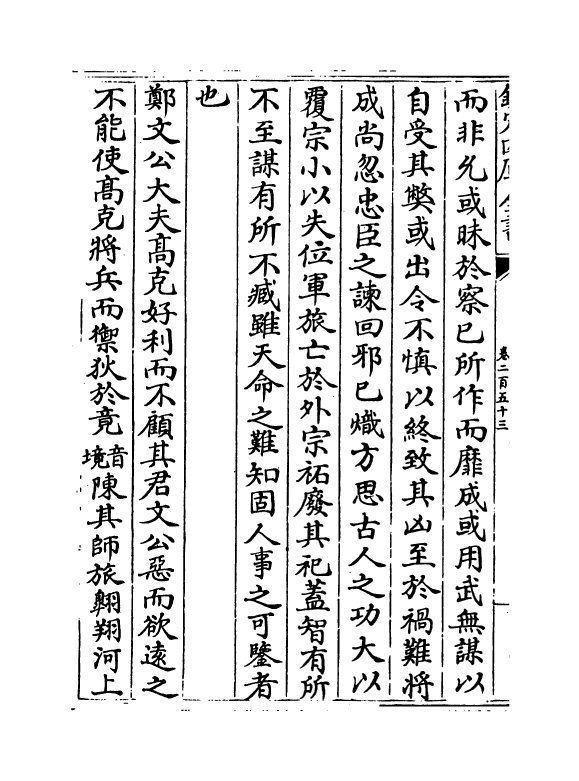 欽定四庫全書
卷二百五十三
而非允或昧於察已所作而靡成或用武無謀以
自受其弊或出令不慎以終致其凶至於禍難將
成尚忽忠臣之諫回邪已熾方思古人之功大以
覆宗小以失位軍旅亡於外宗祏廢其祀蓋智有所
不至謀有所不臧雖天命之難知固人事之可鑒者
也
鄭文公大夫髙克好利而不顧其君文公惡而欲逺之
不能使髙克將兵而禦狄於竟音境陳其師旅翺翔河上